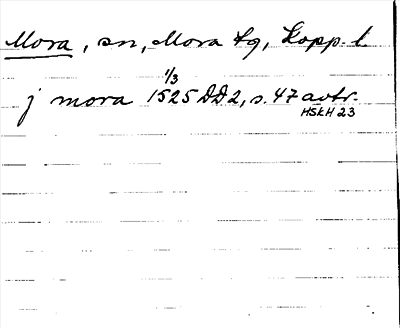 Mora, sn, Mora tg, Kopp. l.
1/3
j mora 1525 DD2, s. 47 avtr.
HSkH 23